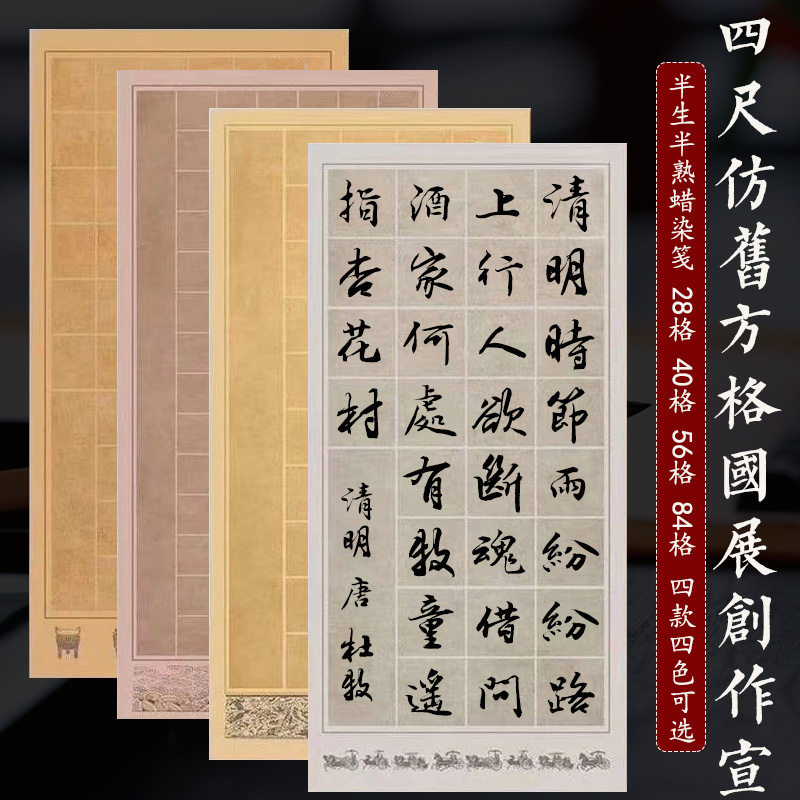 四尺仿舊方格國展創作宣
半生半熟蜡染笺 28格 40格 56格 84格 四款四色可选
清明時節雨紛紛路
上行人欲斷魂借問
酒家何處有牧童遙
指杏花村
清明 唐 杜牧